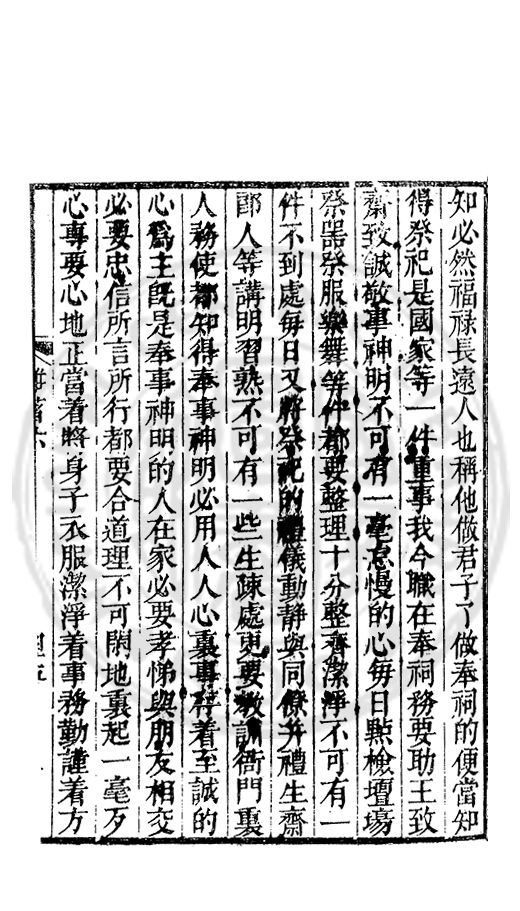 知必然福祿長遠人也稱他做君子了做奉祠的便當知
得祭祀是國家等一件重事我今職在奉祠務要助王致
齋致誠敬事神明不可有一毫怠慢的心每日點檢壇場
祭器祭服樂舞等件都要整理十分整齊潔淨不可有一
件不到處每日又將祭祀的禮儀動靜與同僚并禮生齋
郎人等講明習熟不可有一些生疎處更要教訓衙門裏
人務使都知得奉事神明必用人人心裏專存着至誠的
心爲主旣是奉事神明的人在家必要孝悌與朋友相交
必要忠信所言所行都要合道理不可閑地裏起一毫歹
心專要心地正當着將身子衣服潔淨着事務勤謹着方